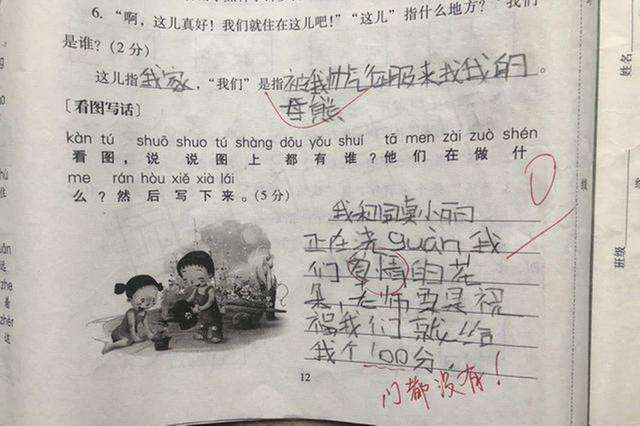 6. “啊，这儿真好！我们就住在这儿吧！”“这儿”指什么地方？“我们”
是谁？（2 分）
这儿指我家，“我们”是指被我帅气征服来找我的
母熊。
［看图写话］
kàn tú shuō shuo tú shàng dōu yǒu shuí tā men zài zuò shén
看图，说说图上都有谁？他们在做什
me rán hòu xiě xià lái
么？然后写下来。（5 分）
我和同桌小丽
正在浇guàn我
们草情的花
朵，老师要是祝
福我们就给
我个100分。
门都没有！
0
12
级
姓名
班级